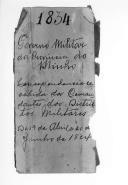 1834
Governo Militar
da Provincia do
Minho
Correspondencia re-
cebida dos Coman-
dantes dos Distri-
tos Militares
De 1º de Abril a 30 de
Junho de 1834